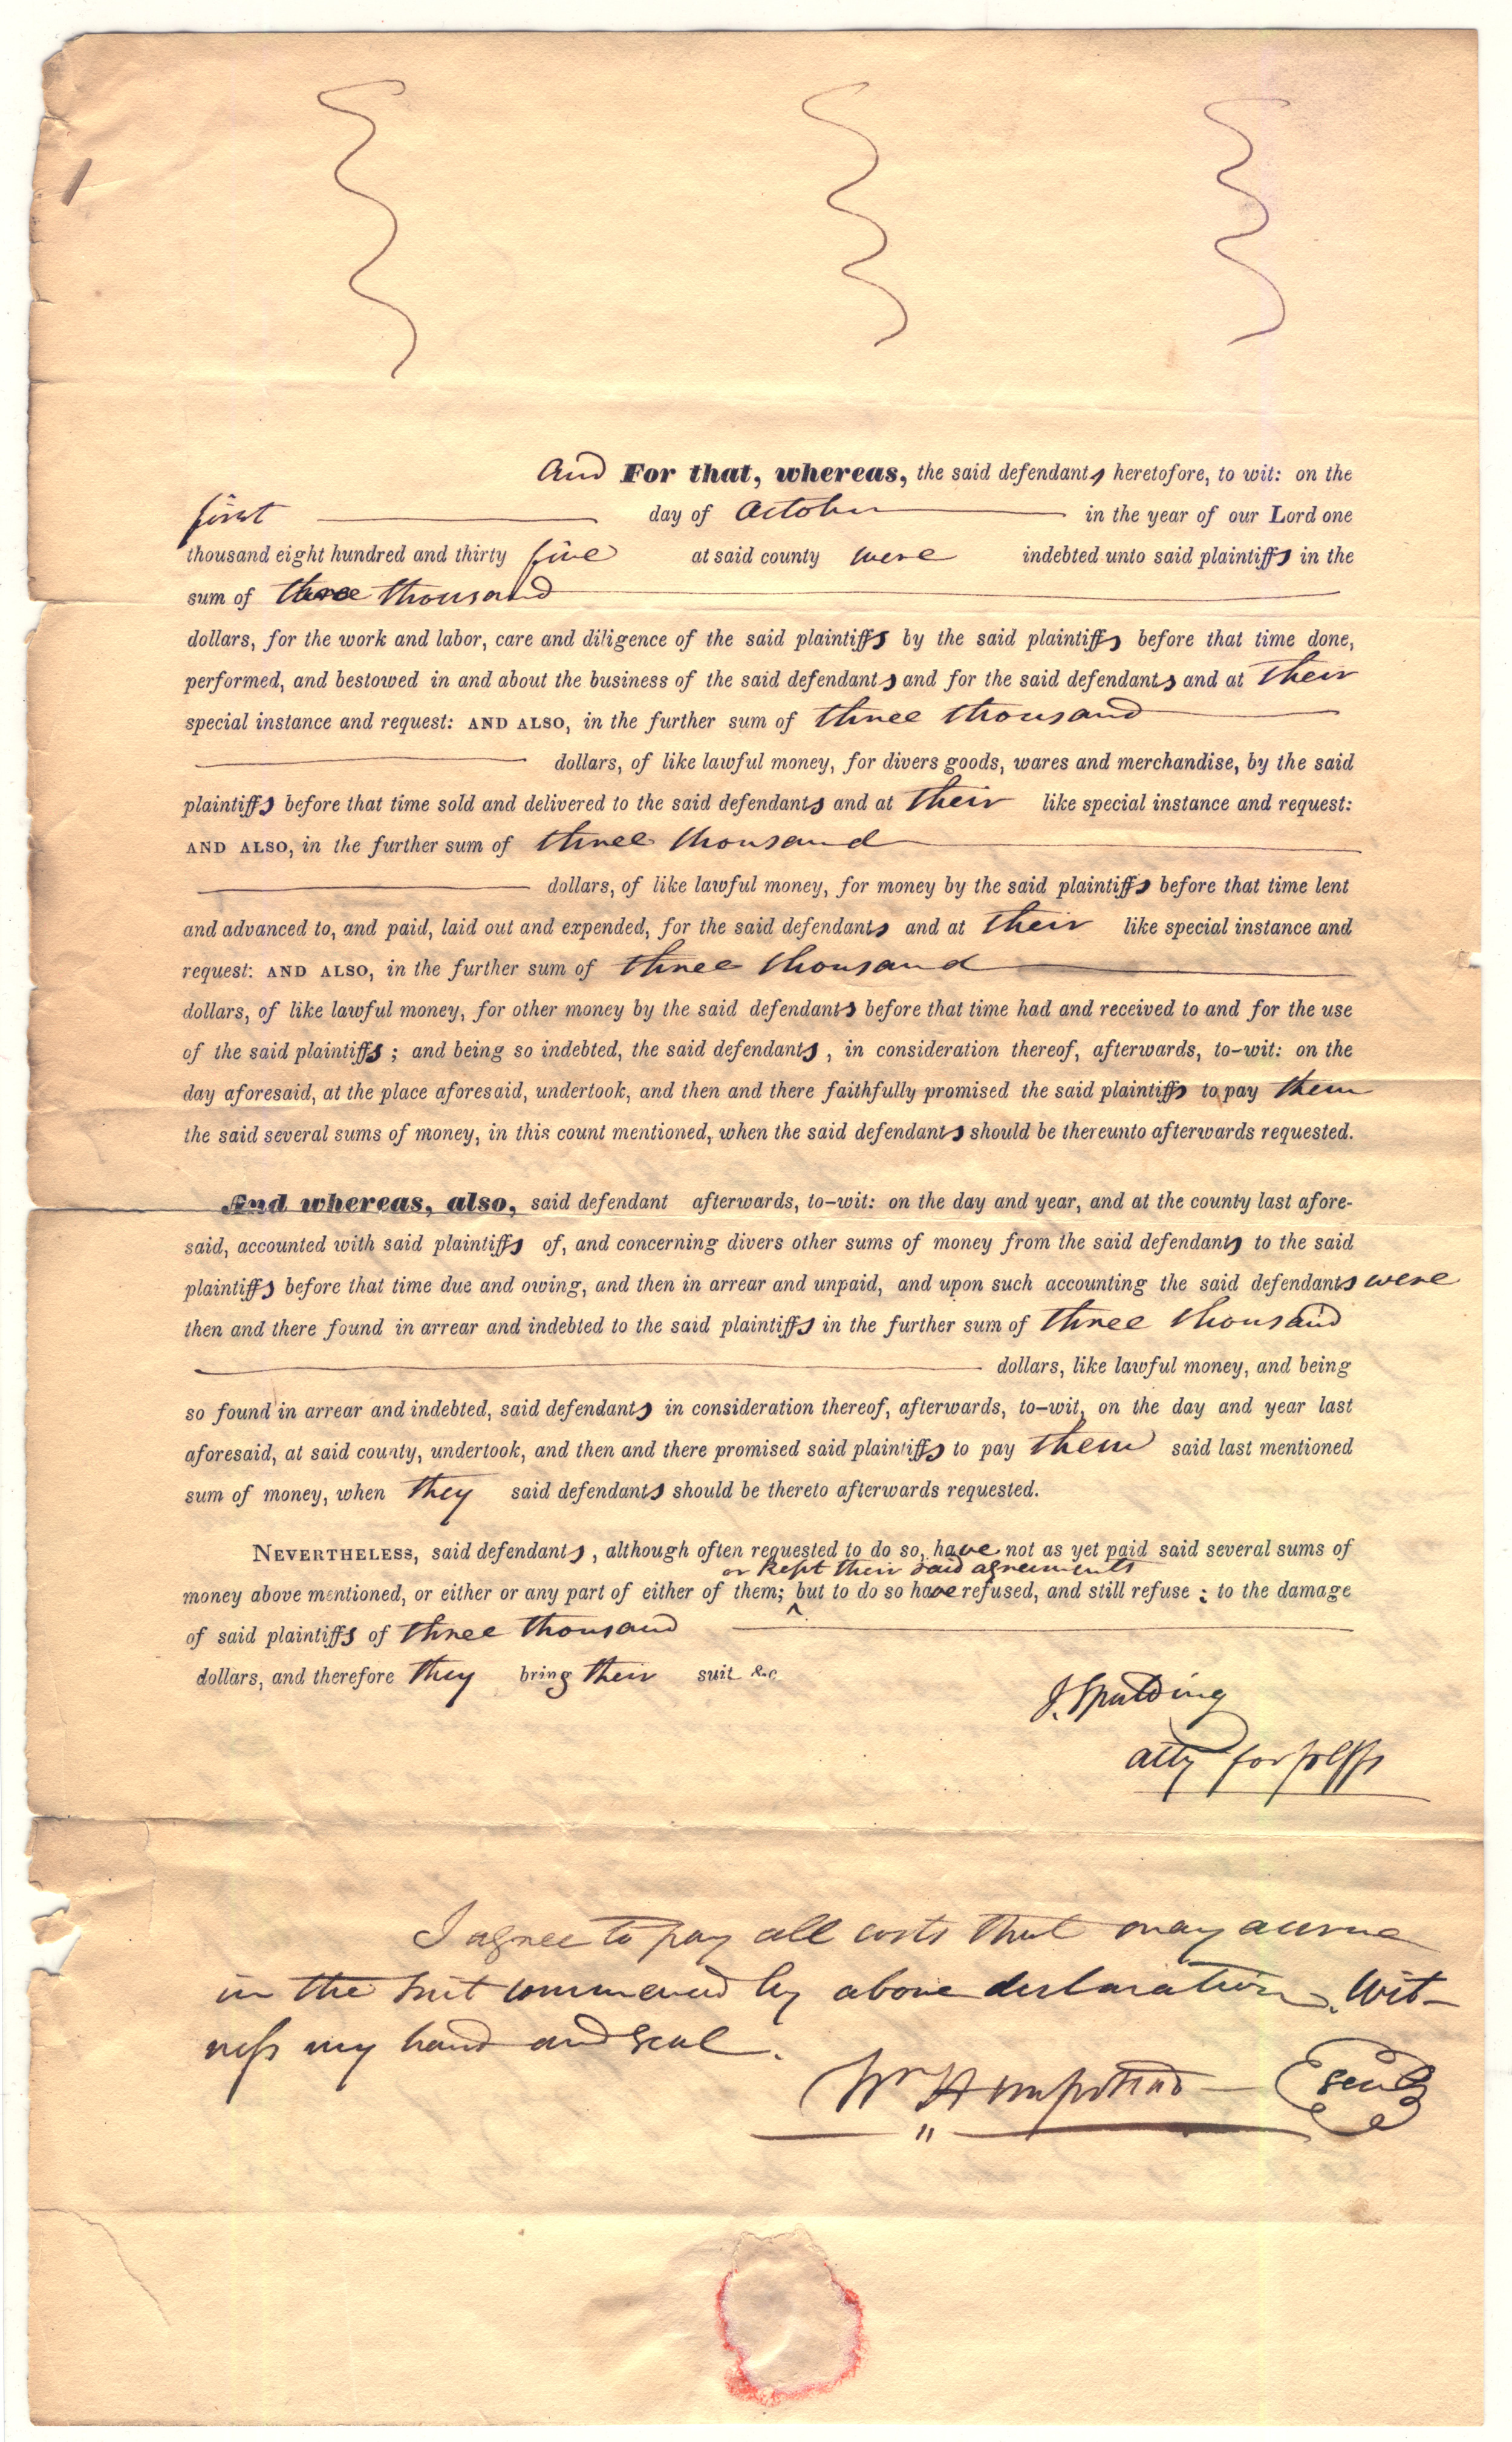 And For that, whereas, the said defendants heretofore, to wit: on the
first day of October in the year of our Lord one
thousand eight hundred and thirty five at said county were indebted unto said plaintiffs in the
sum of three thousand
dollars, for the work and labor, care and diligence of the said plaintiffs by the said plaintiffs before that time done,
performed, and bestowed in and about the business of the said defendants and for the said defendants and at their
special instance and request: AND ALSO, in the further sum of three thousand
dollars, of like lawful money, for divers goods, wares and merchandise, by the said
plaintiffs before that time sold and delivered to the said defendants and at their like special instance and request:
AND ALSO, in the further sum of three thousand
dollars, of like lawful money, for money by the said plaintiffs before that time lent
and advanced to, and paid, laid out and expended, for the said defendants and at their like special instance and
request: AND ALSO, in the further sum of three thousand
dollars, of like lawful money, for other money by the said defendants before that time had and received to and for the use
of the said plaintiffs; and being so indebted, the said defendants, in consideration thereof, afterwards, to-wit: on the
day aforesaid, at the place aforesaid, undertook, and then and there faithfully promised the said plaintiffs to pay them
the said several sums of money, in this count mentioned, when the said defendants should be thereunto afterwards requested.
And whereas, also, said defendant afterwards, to-wit: on the day and year, and at the county last afore-
said, accounted with said plaintiffs of, and concerning divers other sums of money from the said defendants to the said
plaintiffs before that time due and owing, and then in arrear and unpaid, and upon such accounting the said defendants were
then and there found in arrear and indebted to the said plaintiffs in the further sum of three thousand
dollars, like lawful money, and being
so found in arrear and indebted, said defendants in consideration thereof, afterwards, to-wit, on the day and year last
aforesaid, at said county, undertook, and then and there promised said plaintiffs to pay them said last mentioned
sum of money, when they said defendants should be thereto afterwards requested.
NEVERTHELESS, said defendants, although often requested to do so, have not as yet paid said several sums of
or kept their said agreements
money above mentioned, or either or any part of either of them; ^ but to do so have refused, and still refuse; to the damage
of said plaintiffs of three thousand
dollars, and therefore they bring their suit &c
J. Spalding
atty for plffs
I agree to pay all costs that may accrue
in the suit commenced by above declaration. Wit-
ness my hand and seal.
Wm Hempstead seal